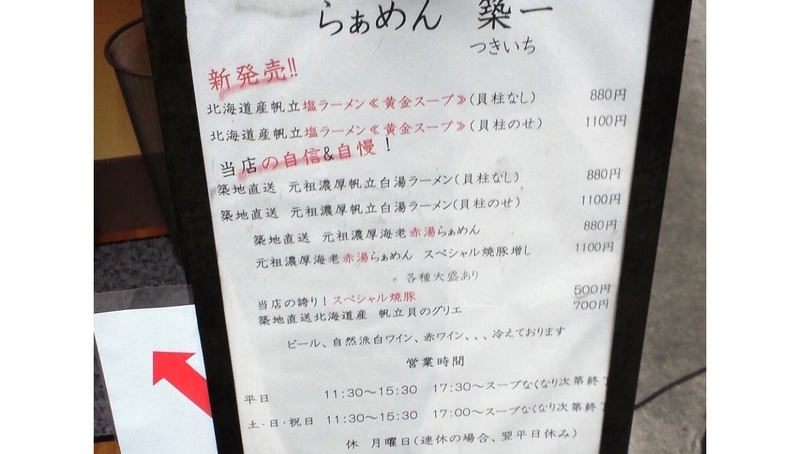 らぁめん 築一
つきいち
新発売!!
北海道産帆立塩ラーメン≪黄金スープ≫(貝柱なし) 880円
北海道産帆立塩ラーメン≪黄金スープ≫(貝柱のせ) 1100円
当店の自信&自慢!
築地直送 元祖濃厚帆立白湯ラーメン(貝柱なし) 880円
築地直送 元祖濃厚帆立白湯ラーメン(貝柱のせ) 1100円
築地直送 元祖濃厚海老赤湯らぁめん 880円
元祖濃厚海老赤湯らぁめん スペシャル焼豚増し 1100円
※各種大盛あり
当店の誇り!スペシャル焼豚 500円
築地直送北海道産 帆立貝のグリエ 700円
ビール、自然派白ワイン、赤ワイン、、、冷えております
営業時間
平日 11:30～15:30 17:30～スープなくなり次第終了
土・日・祝日 11:30～15:30 17:00～スープなくなり次第終了
休 月曜日(連休の場合、翌平日休み)